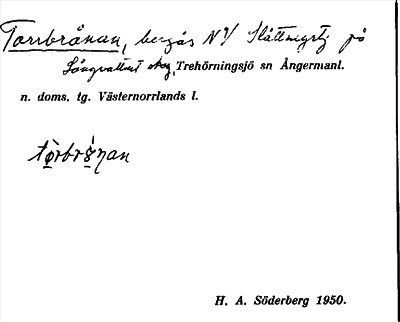 Torrbrånan, bergås N℣ Slåttmyrtj. på
Långvattnet skog, Trehörningsjö sn Ångermanl.
n. doms. tg. Västernorrlands l.
H. A. Söderberg 1950.